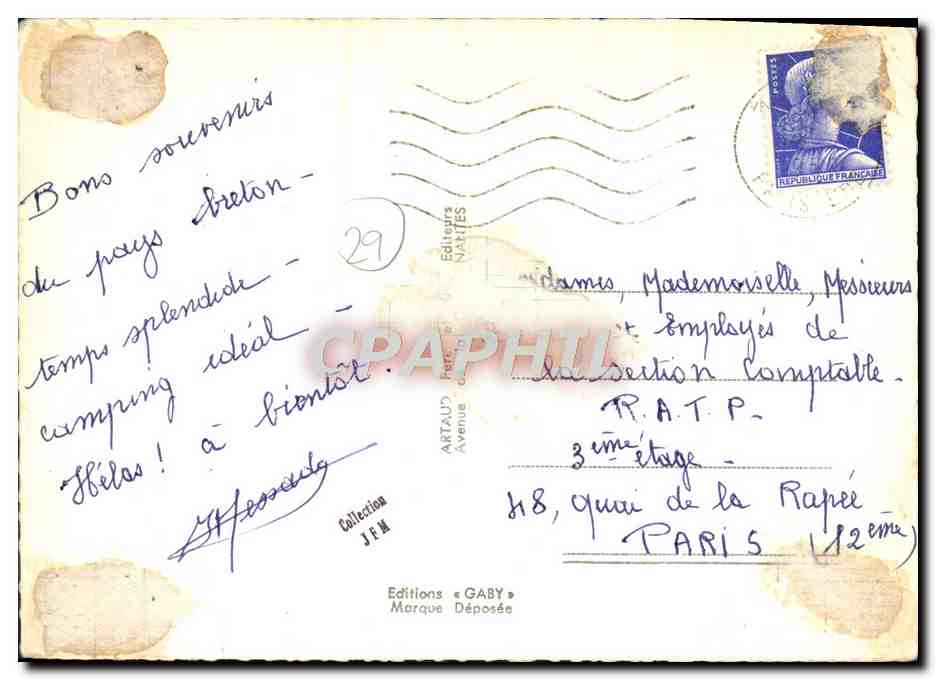 Bons souvenirs
du pays breton -
temps splendide -
camping idéal -
Hélas ! à bientôt.
29
Collection
JFM
Editions « GABY »
Marque Déposée
ARTAUD
Avenue
Editeurs
NANTES
CPAPHIL
POSTES
REPUBLIQUE FRANÇAISE
dames, Mademoiselle, Messieurs
et Employés de
la section Comptable.
R.A.T.P.
3ème étage -
48, quai de la Rapée
PARIS (12ème)